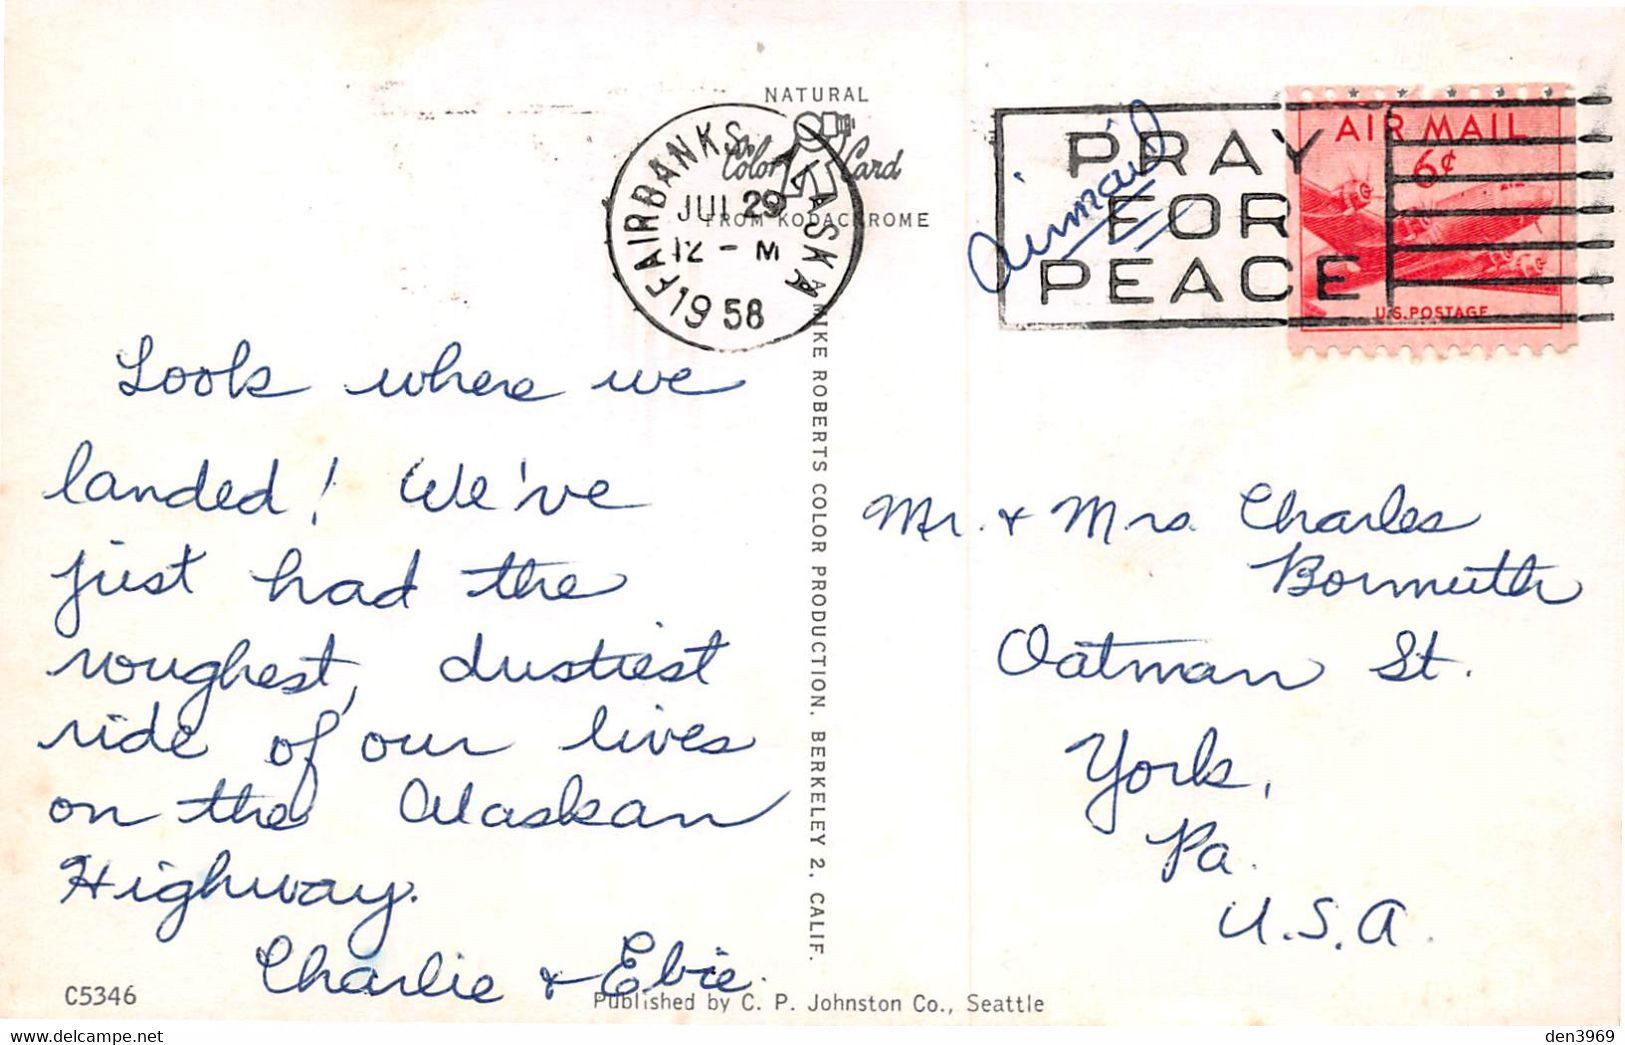 NATURAL
Color Card
FROM KODACHROME
FAIRBANKS, ALASKA
JUL 29
12 - M
1958
PRAY
FOR
PEACE
Airmail
AIR MAIL
6¢
U.S. POSTAGE
Look where we
landed! We've
just had the
roughest, dustiest
ride of our lives
on the Alaskan
Highway.
Charlie & Ebie.
A MIKE ROBERTS COLOR PRODUCTION. BERKELEY 2, CALIF.
Mr. & Mrs. Charles
Bormuth
Oatman St.
York,
Pa.
U.S.A.
C5346
Published by C. P. Johnston Co., Seattle
www.delcampe.net
den3969